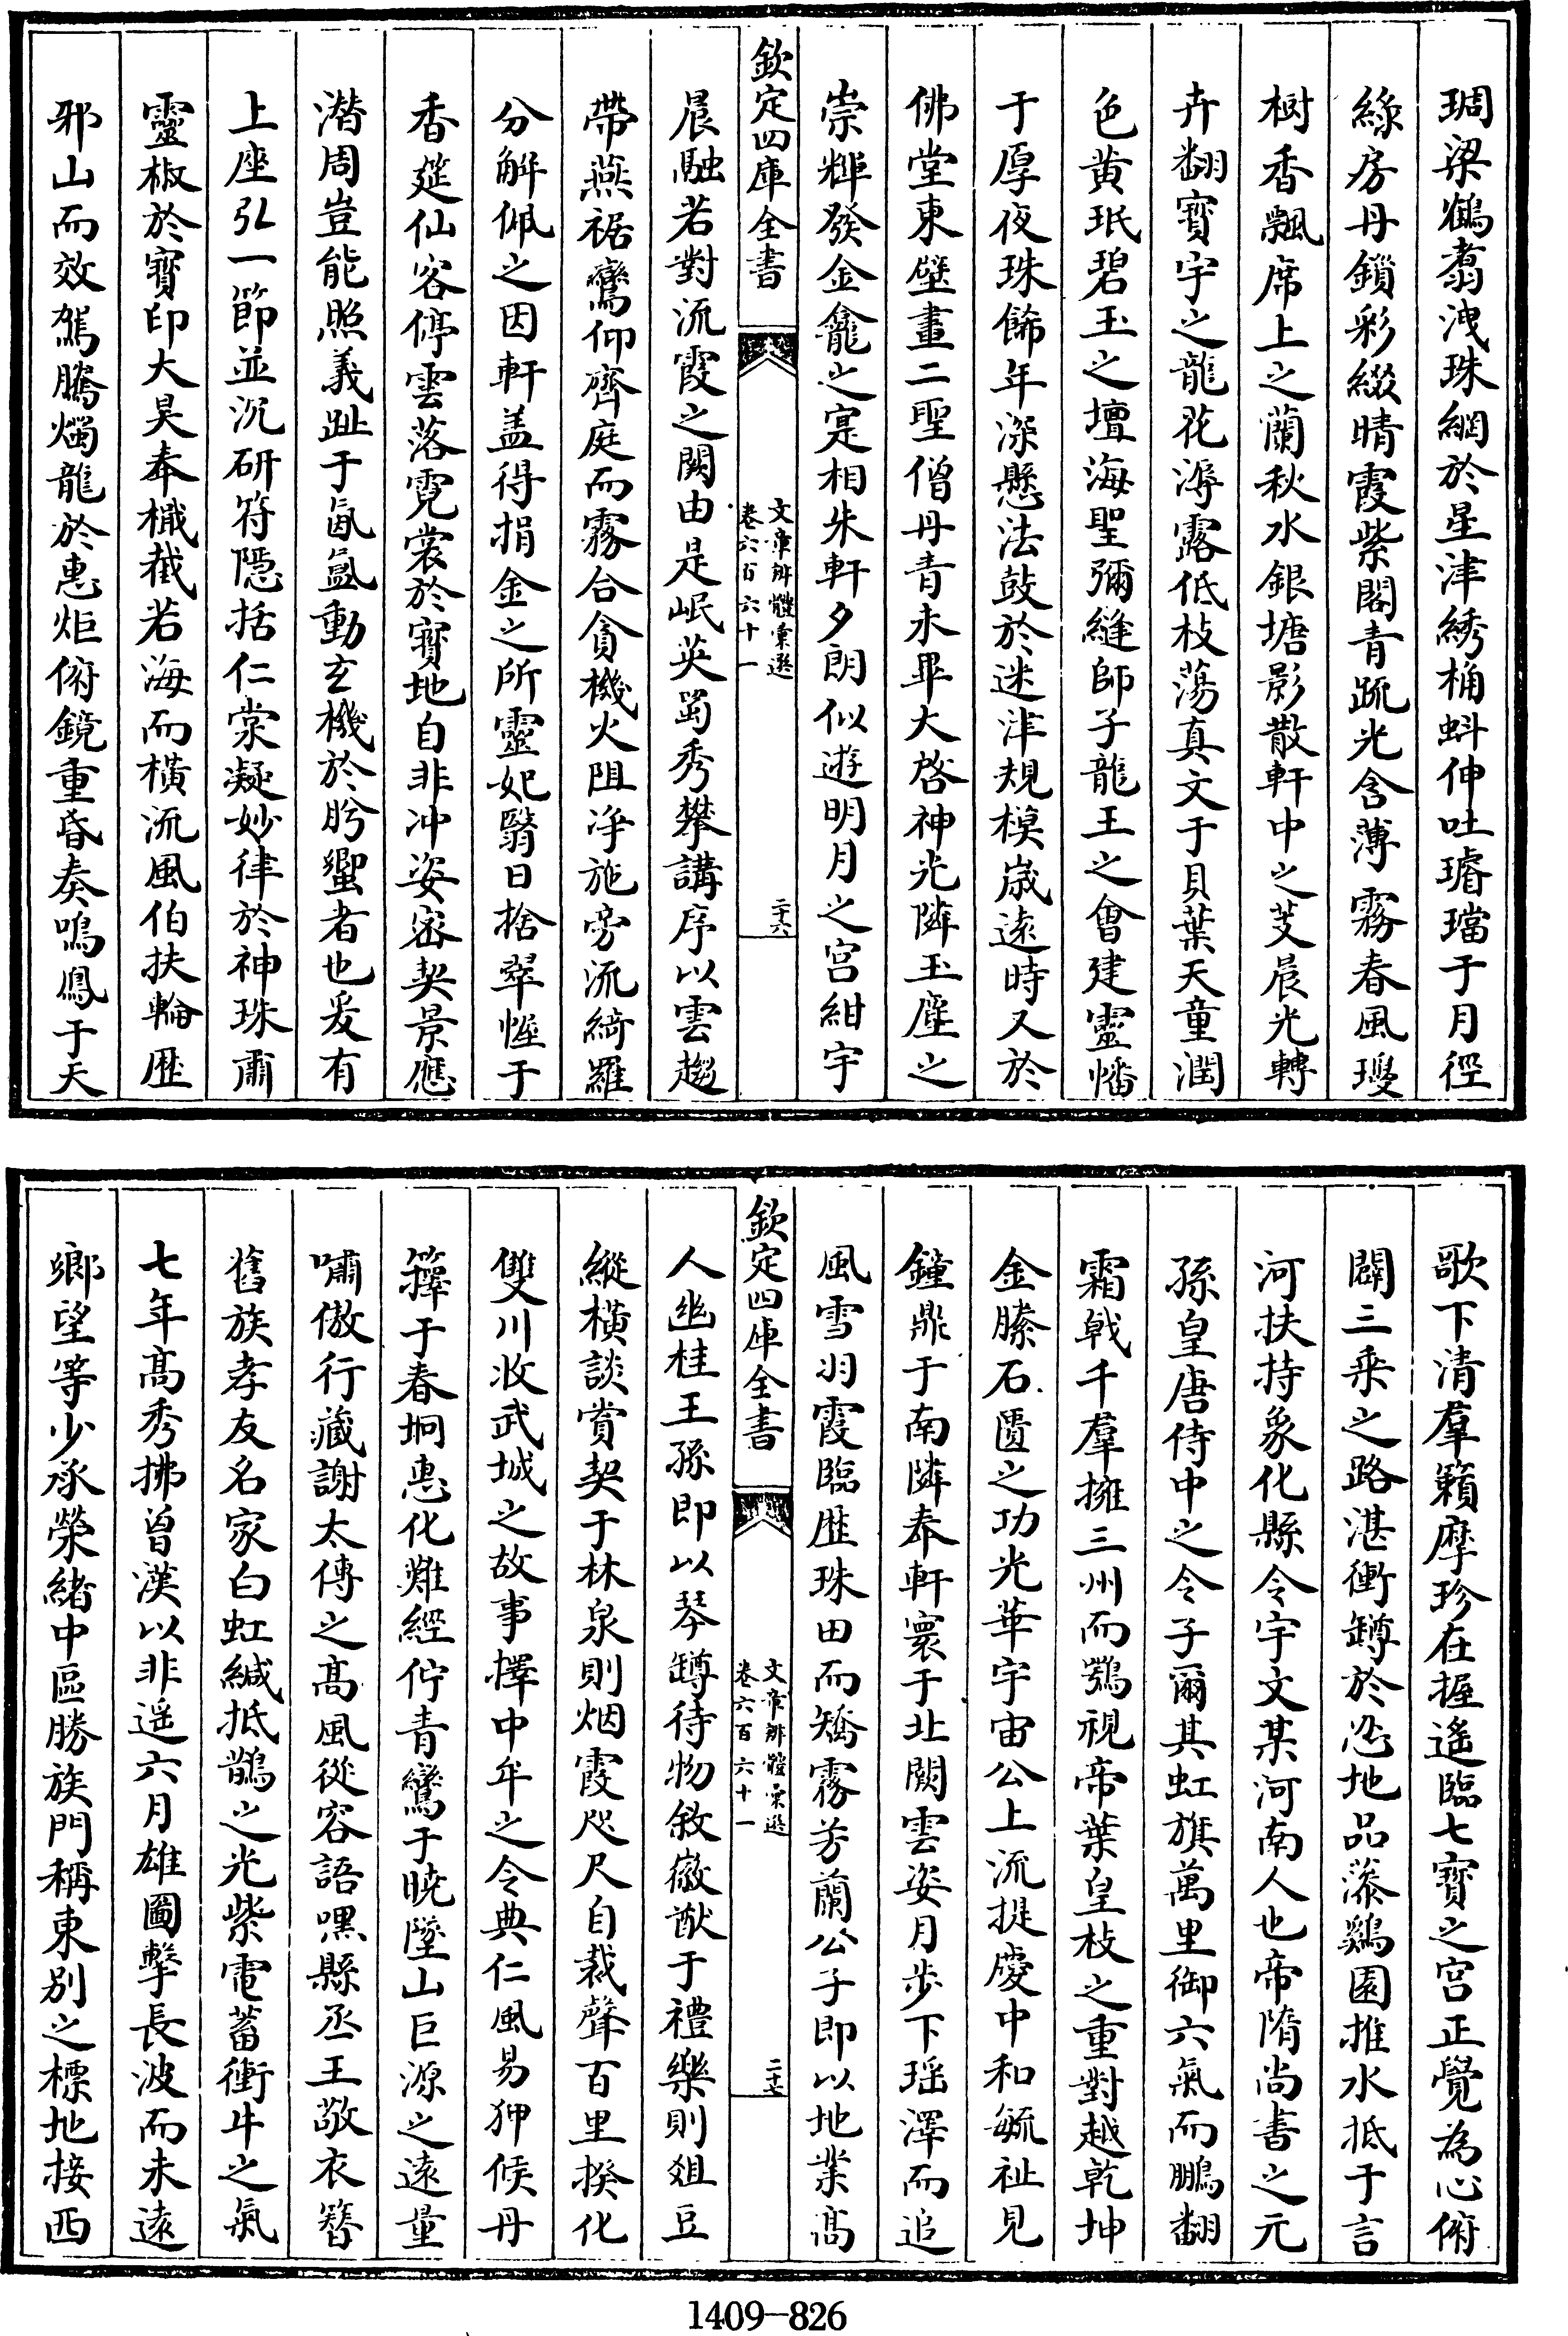 琱梁鶴翥洩珠網於星津綉桷蚪伸吐璿璫于月徑
綠房丹鎖彩綴晴霞紫閣青疏光含薄霧春風璦
樹香飄席上之蘭秋水銀塘影散軒中之芰晨光轉
卉翻寳宇之龍花溽露低枝蕩真文于貝葉天童潤
色黄珉碧玉之壇海聖彌縫師子龍王之會建靈幡
于厚夜珠餙年深懸法鼓於迷津規模歳遠時又於
佛堂東壁畫二聖僧丹青未畢大啓神光隣玉塵之
崇輝發金龕之寔相朱軒夕朗似遊明月之宫紺宇
欽定四庫全書
文章辨體彙選
卷六百六十一
二十六
晨融若對流霞之闕由是岷英蜀秀攀講序以雲趨
帶燕裾鸞仰齊庭而霧合貪機火阻浄施旁流綺羅
分解佩之因軒盖得捐金之所靈妃翳日捨翠幄于
香筵仙客停雲落霓裳於寳地自非冲姿宻契景應
潜周豈能照義趾于氤氲動玄機於肹蠁者也爰有
上座弘一節並沉研符隠括仁棠凝妙律於神珠肅
靈椒於寳印大昊奉檝截若海而横流風伯扶輪歴
邪山而效駕騰燭龍於惠炬俯鏡重昏奏鳴鳳于天
歌下清羣籟摩珍在握遙臨七寳之宫正覺為心俯
闢三乘之路湛衝罇於沁地品藻鷄園推水抵于言
河扶持象化縣令宇文某河南人也帝隋尚書之元
孫皇唐侍中之令子爾其虹旗萬里御六氣而鵬翻
霜戟千羣擁三州而鶚視帝葉皇枝之重對越乾坤
金縢石匱之功光華宇宙公上流提慶中和毓祉見
鐘鼎于南隣奉軒寰于北闕雲姿月歩下瑶澤而追
風雪羽霞臨歴珠田而矯霧芳蘭公子即以地業髙
欽定四庫全書
文章辨體彙選
卷六百六十一
二十七
人幽桂王孫即以琴罇待物敘徽猷于禮樂則爼豆
縱横談賞契于林泉則烟霞咫尺自裁聲百里揆化
雙川收武城之故事擇中牟之令典仁風易狎候丹
籜于春坰惠化難經佇青鸞于曉墜山巨源之遠量
嘯傲行藏謝太傅之髙風從容語嘿縣丞王敬衣簪
舊族孝友名家白虹緘抵鵲之光紫電蓄衝牛之氣
七年髙秀拂曾漢以非遥六月雄圖擊長波而未遠
鄉望等少承榮緒中區勝族門稱東别之標地接西
1409-826